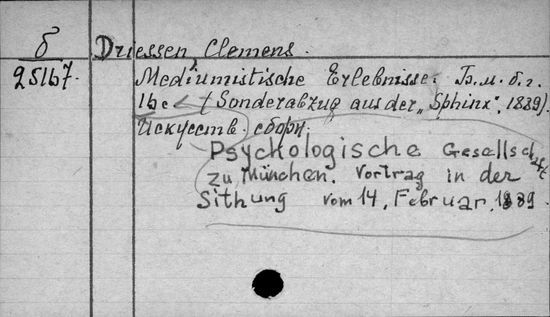 б
25167.
Driessen, Clemens.
Mediumistische Erlebnisse. Б.м. б.г.
16 c (Sonderabzug aus der „Sphinx", 1889).
Искусств. сборн.
Psychologische Gesellschaft
zu München. Vortrag in der
Sithung vom 14. Februar. 1889.